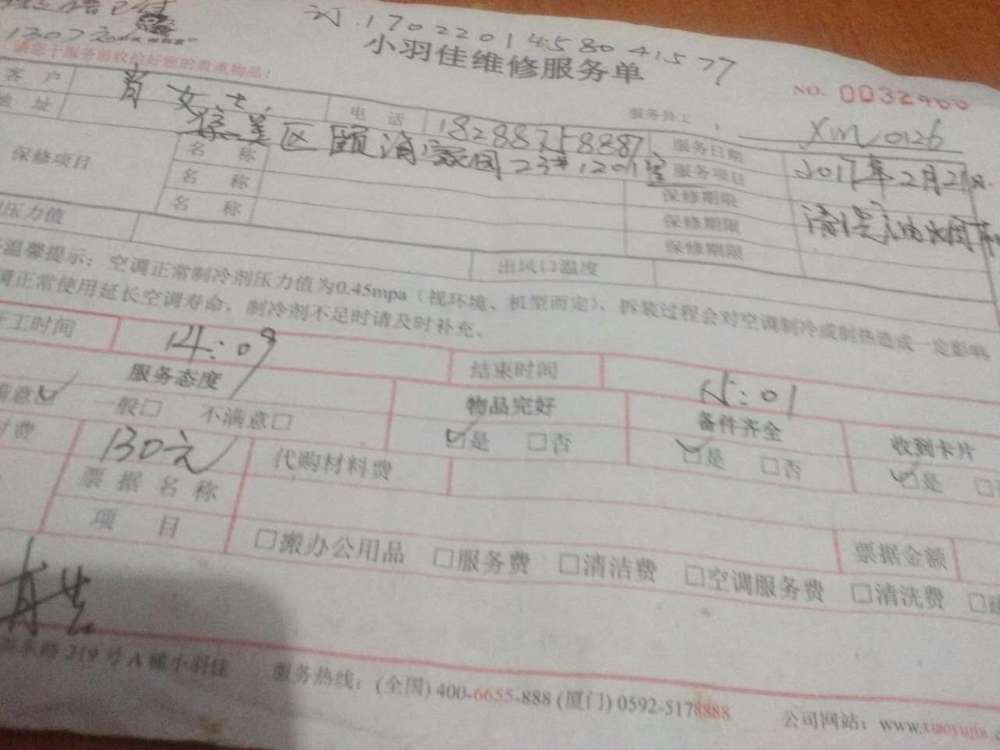 订.17022014580 41577
130元
小羽佳维修服务单
请您于服务前收拾好您的贵重物品！
NO. 0032400
客 户 肖女士 电 话 18288758887 服务员工 XM0126
地 址 区颐 家园23#1201室 服务日期 2017年2月21日
保修项目 名 称 服务项目 清洗油烟机
名 称 保修期限
名 称 保修期限
保修期限
压力值 出风口温度
温馨提示：空调正常制冷剂压力值为0.45mpa（视环境、机型而定），拆装过程会对空调制冷或制热造成一定影响
正常使用延长空调寿命，制冷剂不足时请及时补充。
工时间 14:09 结束时间 15:01
服务态度 物品完好 备件齐全 收到卡片
满意☑ 一般□ 不满意□ ☑是 □否 ☑是 □否 ☑是 □
付费 130元 代购材料费
票据名称
项 目 □搬办公用品 □服务费 □清洁费 □空调服务费 □清洗费 票据金额
东路 219 号 A 幢小羽佳 服务热线：(全国) 400-6655-888 (厦门) 0592-5178888 公司网站：www.xiaoyujia